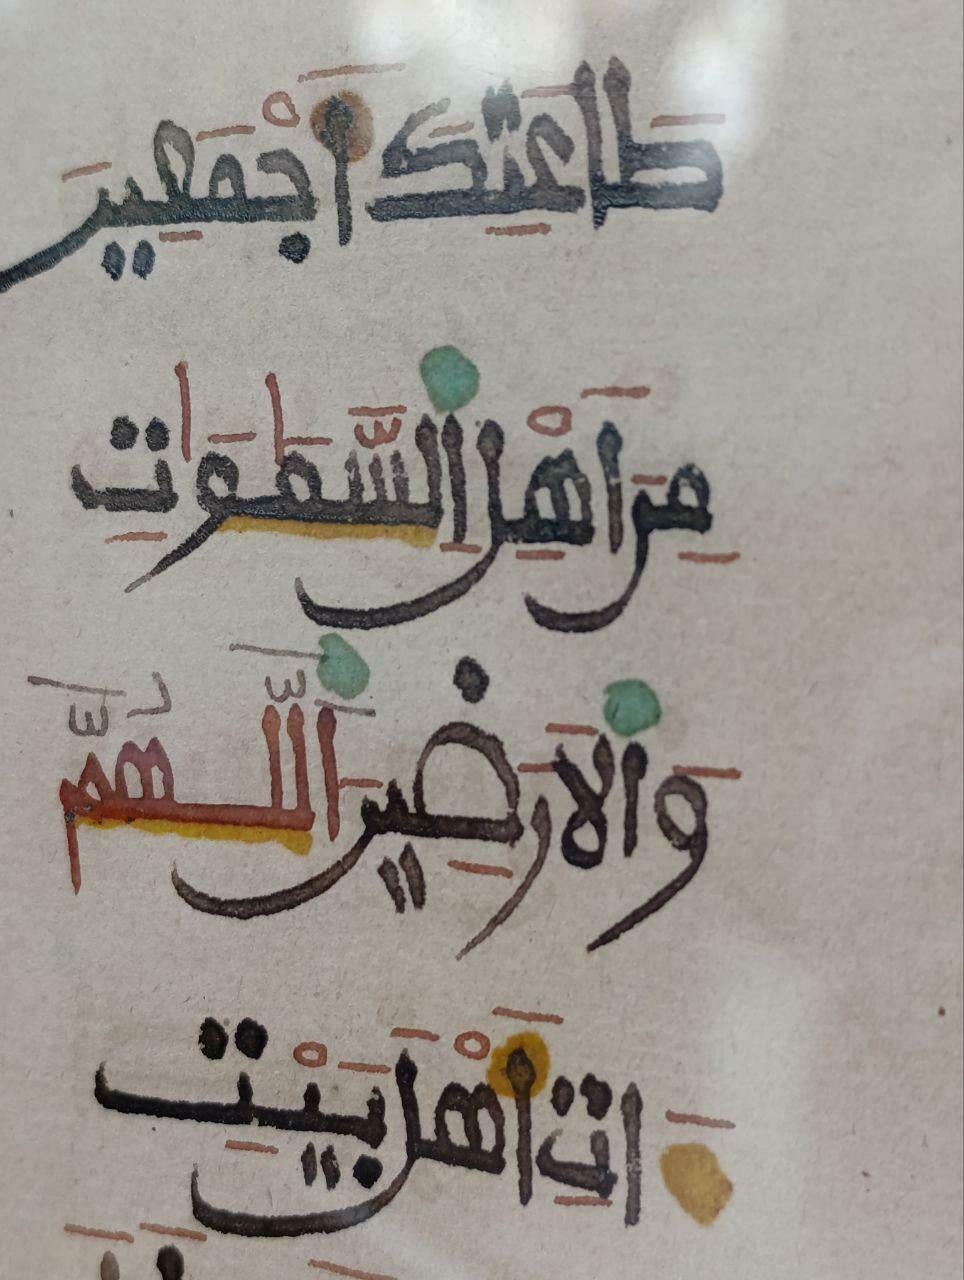 طَاعَتِكَ أَجْمَعِينَ
مِنَ أَهْلِ السَّمَٰوَٰتِ
وَالَارَضِينَ اللَّهُمَّ
ءَاتِ أَهْلَ بَيْتِ